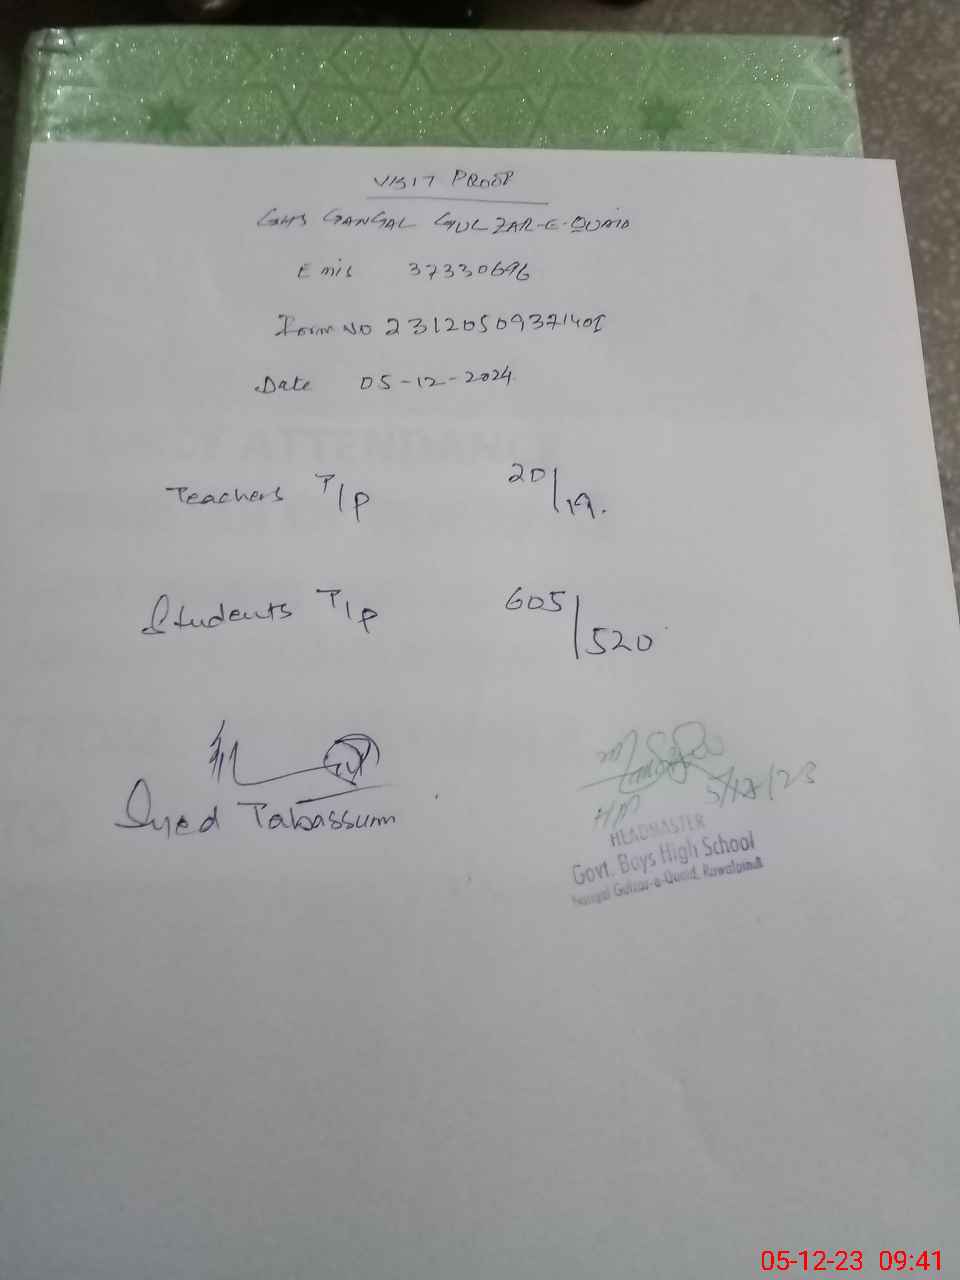 VISIT PROOF
GHS GANGAL GULZAR-E-QUAID
Emis 37330696
Form NO 23120509371401
Date 05-12-2024
Teachers T/P 20/19.
Students T/P 605/520
Syed Tabassum
5/12/23
HM
HEADMASTER
Govt. Boys High School
Gangal Gulzar-e-Quaid, Rawalpindi
05-12-23 09:41